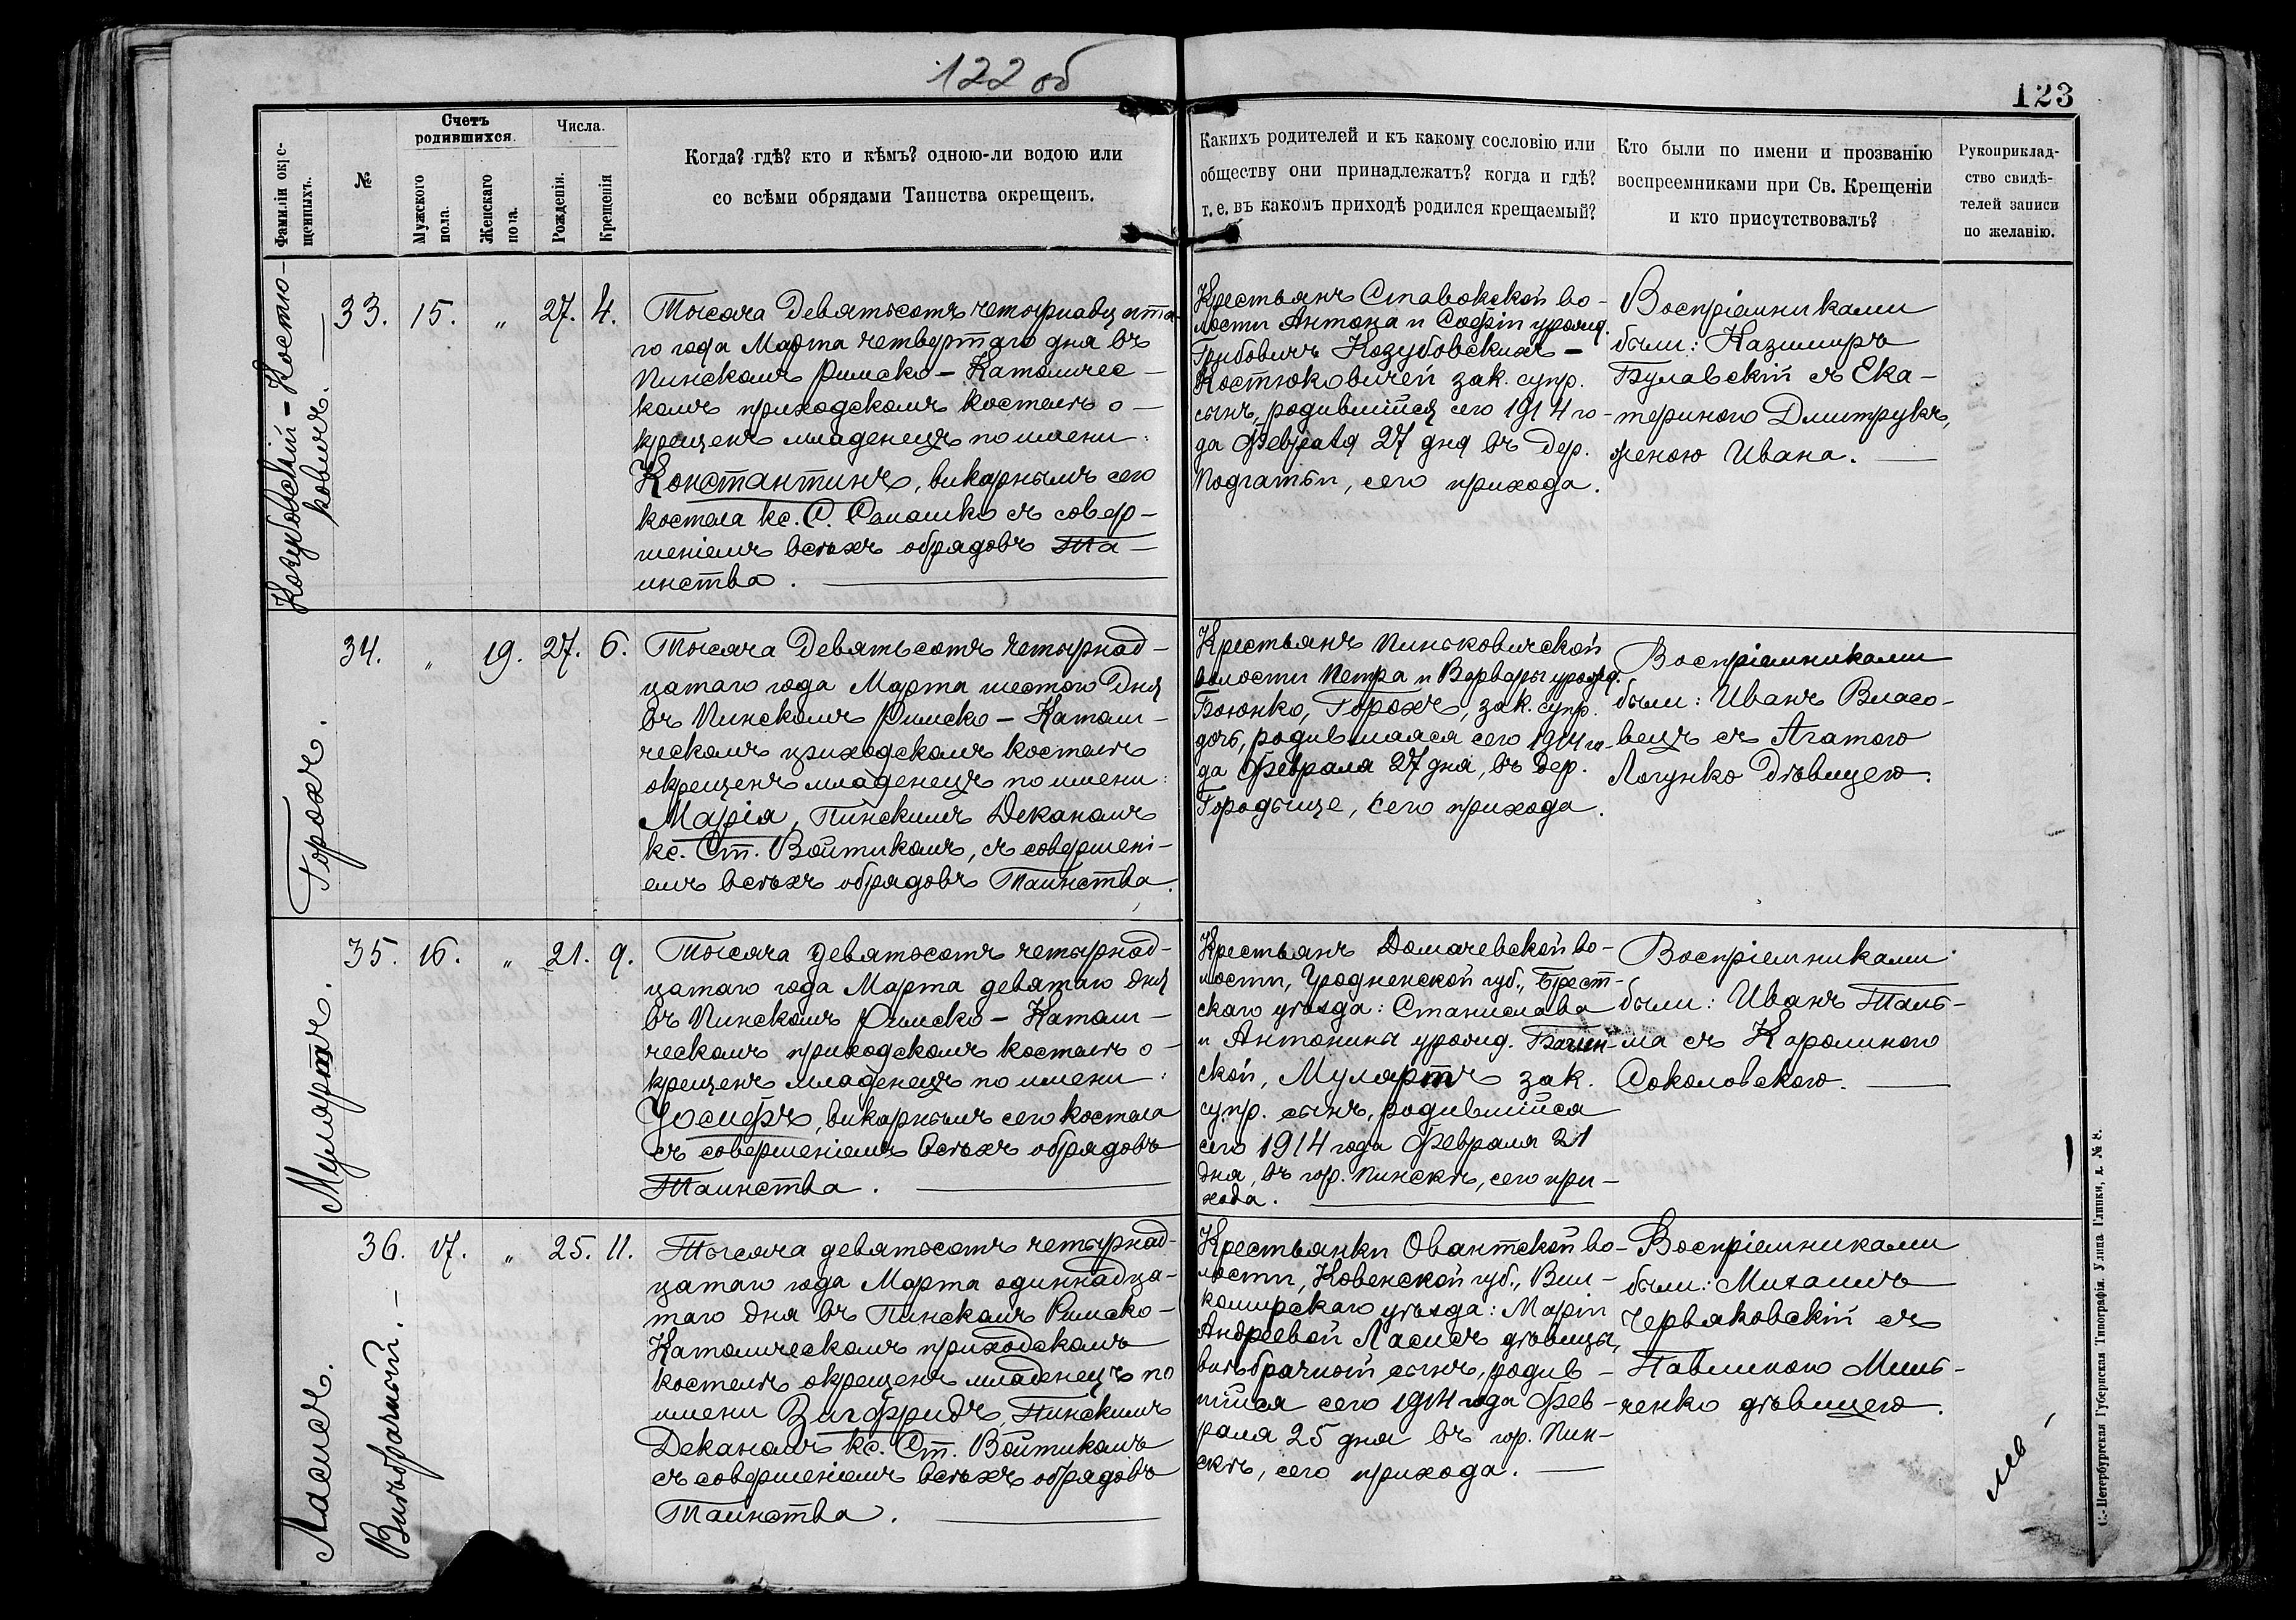 122 об
123
Фамиліи окре-
щенныхъ.
№
Счетъ
родившихся.
Мужского
пола.
Женскаго
пола.
Числа.
Рожденія.
Крещенія
Когда? гдѣ? кто и кѣмъ? одною-ли водою или
со всѣми обрядами Таинства окрещенъ.
Какихъ родителей и къ какому сословію или
обществу они принадлежатъ? когда и гдѣ?
т. е. въ какомъ приходѣ родился крещаемый?
Кто были по имени и прозванію
воспреемниками при Св. Крещеніи
и кто присутствовалъ?
Рукоприклад-
ство свидѣ-
телей записи
по желанію.
Козубовскій-Костю-
ковичъ.
33. 15. „ 27. 4.
Тысяча девятьсотъ четырнадцата-
го года Марта четвертаго дня въ
Пинскомъ Римско-Католичес-
комъ приходскомъ костелѣ о-
крещенъ младенецъ по имени:
Константинъ, викарнымъ сего
костела кс. С. Саматко съ совер-
шеніемъ всѣхъ обрядовъ Та-
инства.
Крестьянъ Ставокской во-
лости Антона и Софіи урожд.
Грибовичъ Козубовскихъ-
Костюковичей зак. супр.
сынъ, родившійся сего 1914 го-
да Февраля 27 дня въ дер.
Подгатьи, сего прихода.
Воспріемниками
были: Казимиръ
Булавскій съ Ека-
териною Дмитрукъ,
женою Ивана.
Горохъ.
34. „ 19. 27. 6.
Тысяча девятьсотъ четырнад-
цатаго года Марта шестого дня
въ Пинскомъ Римско-Католи-
ческомъ приходскомъ костелѣ
окрещенъ младенецъ по имени:
Марія, Пинскимъ Деканомъ
кс. Ст. Войтикомъ, съ совершені-
емъ всѣхъ обрядовъ Таинства.
Крестьянъ Пинковичской
волости Петра и Варвары урожд.
Боюнко, Горохъ, зак. супр.
дочь, родившаяся сего 1914 го-
да Февраля 27 дня, въ дер.
Городыще, сего прихода.
Воспріемниками
были: Иванъ Власо-
вецъ съ Агатою
Логунко дѣвицею.
Мулартъ.
35. 16. „ 21. 9.
Тысяча девятьсотъ четырнад-
цатаго года Марта девятаго дня
въ Пинскомъ Римско-Католи-
ческомъ приходскомъ костелѣ о-
крещенъ младенецъ по имени:
Іосифъ, викарнымъ сего костела
съ совершеніемъ всѣхъ обрядовъ
Таинства.
Крестьянъ Домачевской во-
лости, Гродненской губ., Брест-
скаго уѣзда: Станислава
и Антонины урожд.
ской, Мулартъ зак.
супр. сынъ, родившійся
сего 1914 года Февраля 21
дня, въ гор. Пинскѣ, сего при-
хода.
Воспріемниками
были: Иванъ Таль-
ма съ Каролиною
Соколовскою.
Ласисъ.
Внѣбрачный.
36. 17. „ 25. 11.
Тысяча девятьсотъ четырнад-
цатаго года Марта одиннадца-
таго дня въ Пинскомъ Римско-
Католическомъ приходскомъ
костелѣ окрещенъ младенецъ по
имени Зигфридъ, Пинскимъ
Деканомъ кс. Ст. Войтикомъ
съ совершеніемъ всѣхъ обрядовъ
Таинства.
Крестьянки Овантской во-
лости, Ковенской губ., Вил-
комирскаго уѣзда: Маріи
Андреевой Ласисъ дѣвицы,
внѣбрачный сынъ, родив-
шійся сего 1914 года Фев-
раля 25 дня въ гор. Пин-
скѣ, сего прихода.
Воспріемниками
были: Михаилъ
Червяковскій съ
Павлиною Миль-
ченко дѣвицею.
С.-Петербургская Губернская Типографія. Улица Глинки, д. № 8.